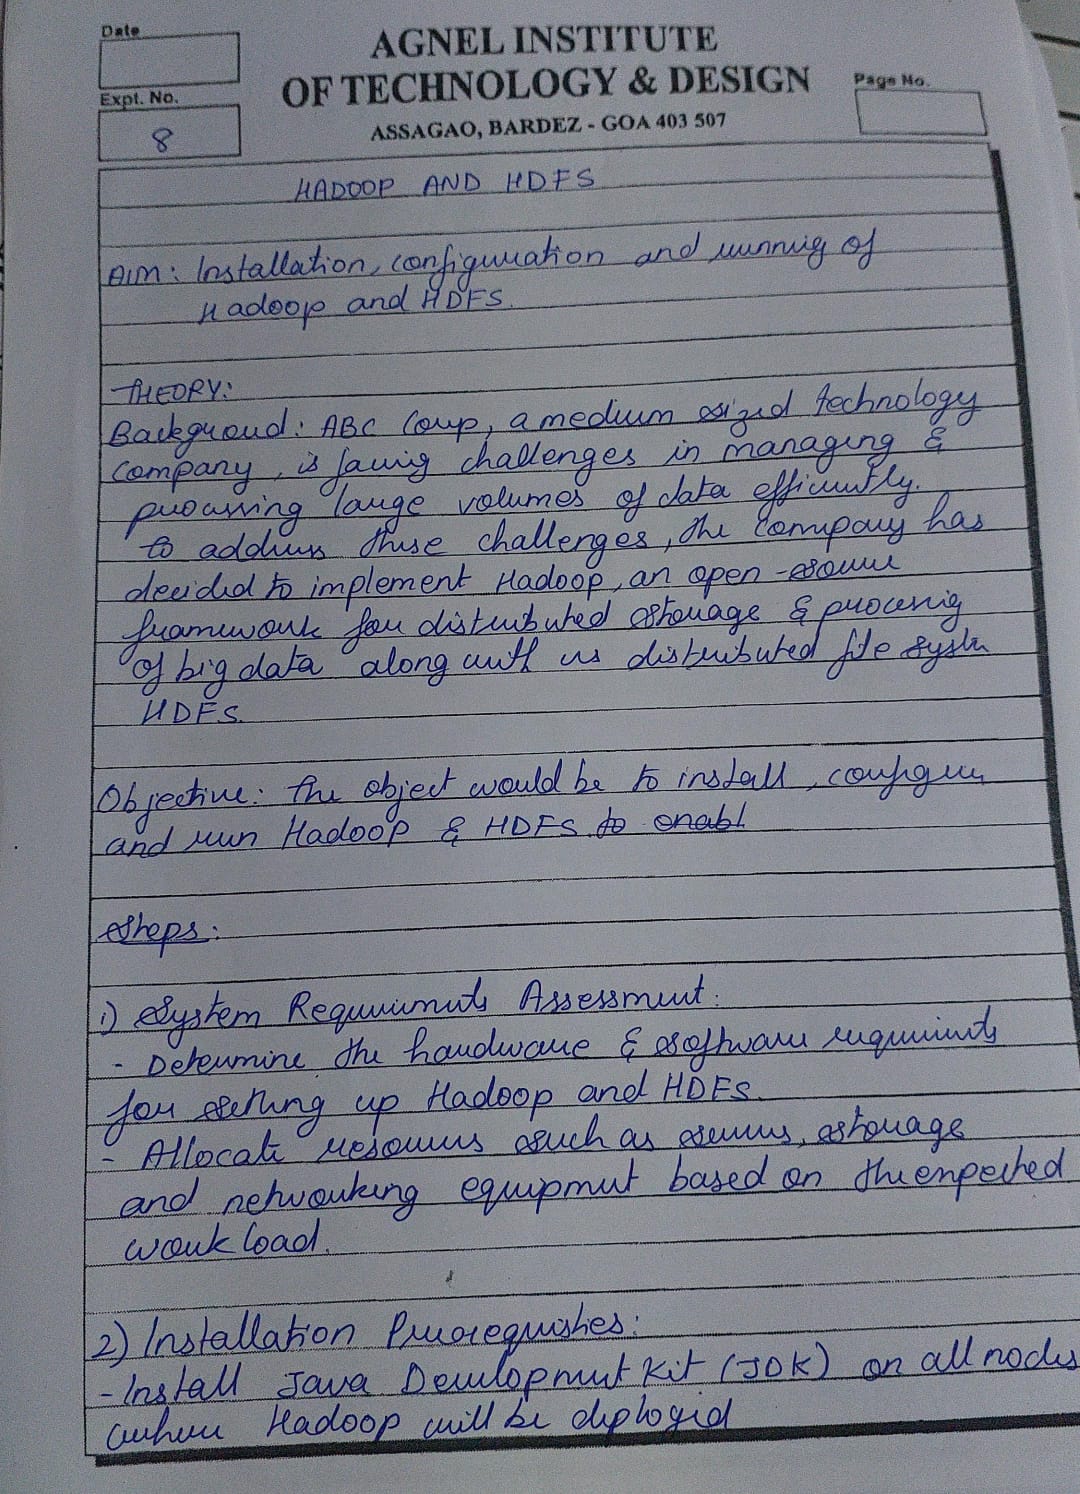 Date
AGNEL INSTITUTE
OF TECHNOLOGY & DESIGN
Page No.
Expt. No.
8
ASSAGAO, BARDEZ - GOA 403 507
HADOOP AND HDFS
AIM: Installation, configuration and running of
Hadoop and HDFS.
THEORY:
Background: ABC Corp, a medium sized technology
company, is facing challenges in managing &
processing large volumes of data efficiently.
to address these challenges, the company has
decided to implement Hadoop, an open-source
framework for distributed storage & processing
of big data along with its distributed file system
HDFS.
Objective: The object would be to install, configure
and run Hadoop & HDFS to enabl
Steps:
1) System Requirements Assessment:
- Determine the hardware & software requirements
for setting up Hadoop and HDFS.
- Allocate resources such as servers, storage
and networking equipment based on the expected
workload.
2) Installation Prerequisites:
- Install Java Development Kit (JDK) on all nodes
where Hadoop will be deployed